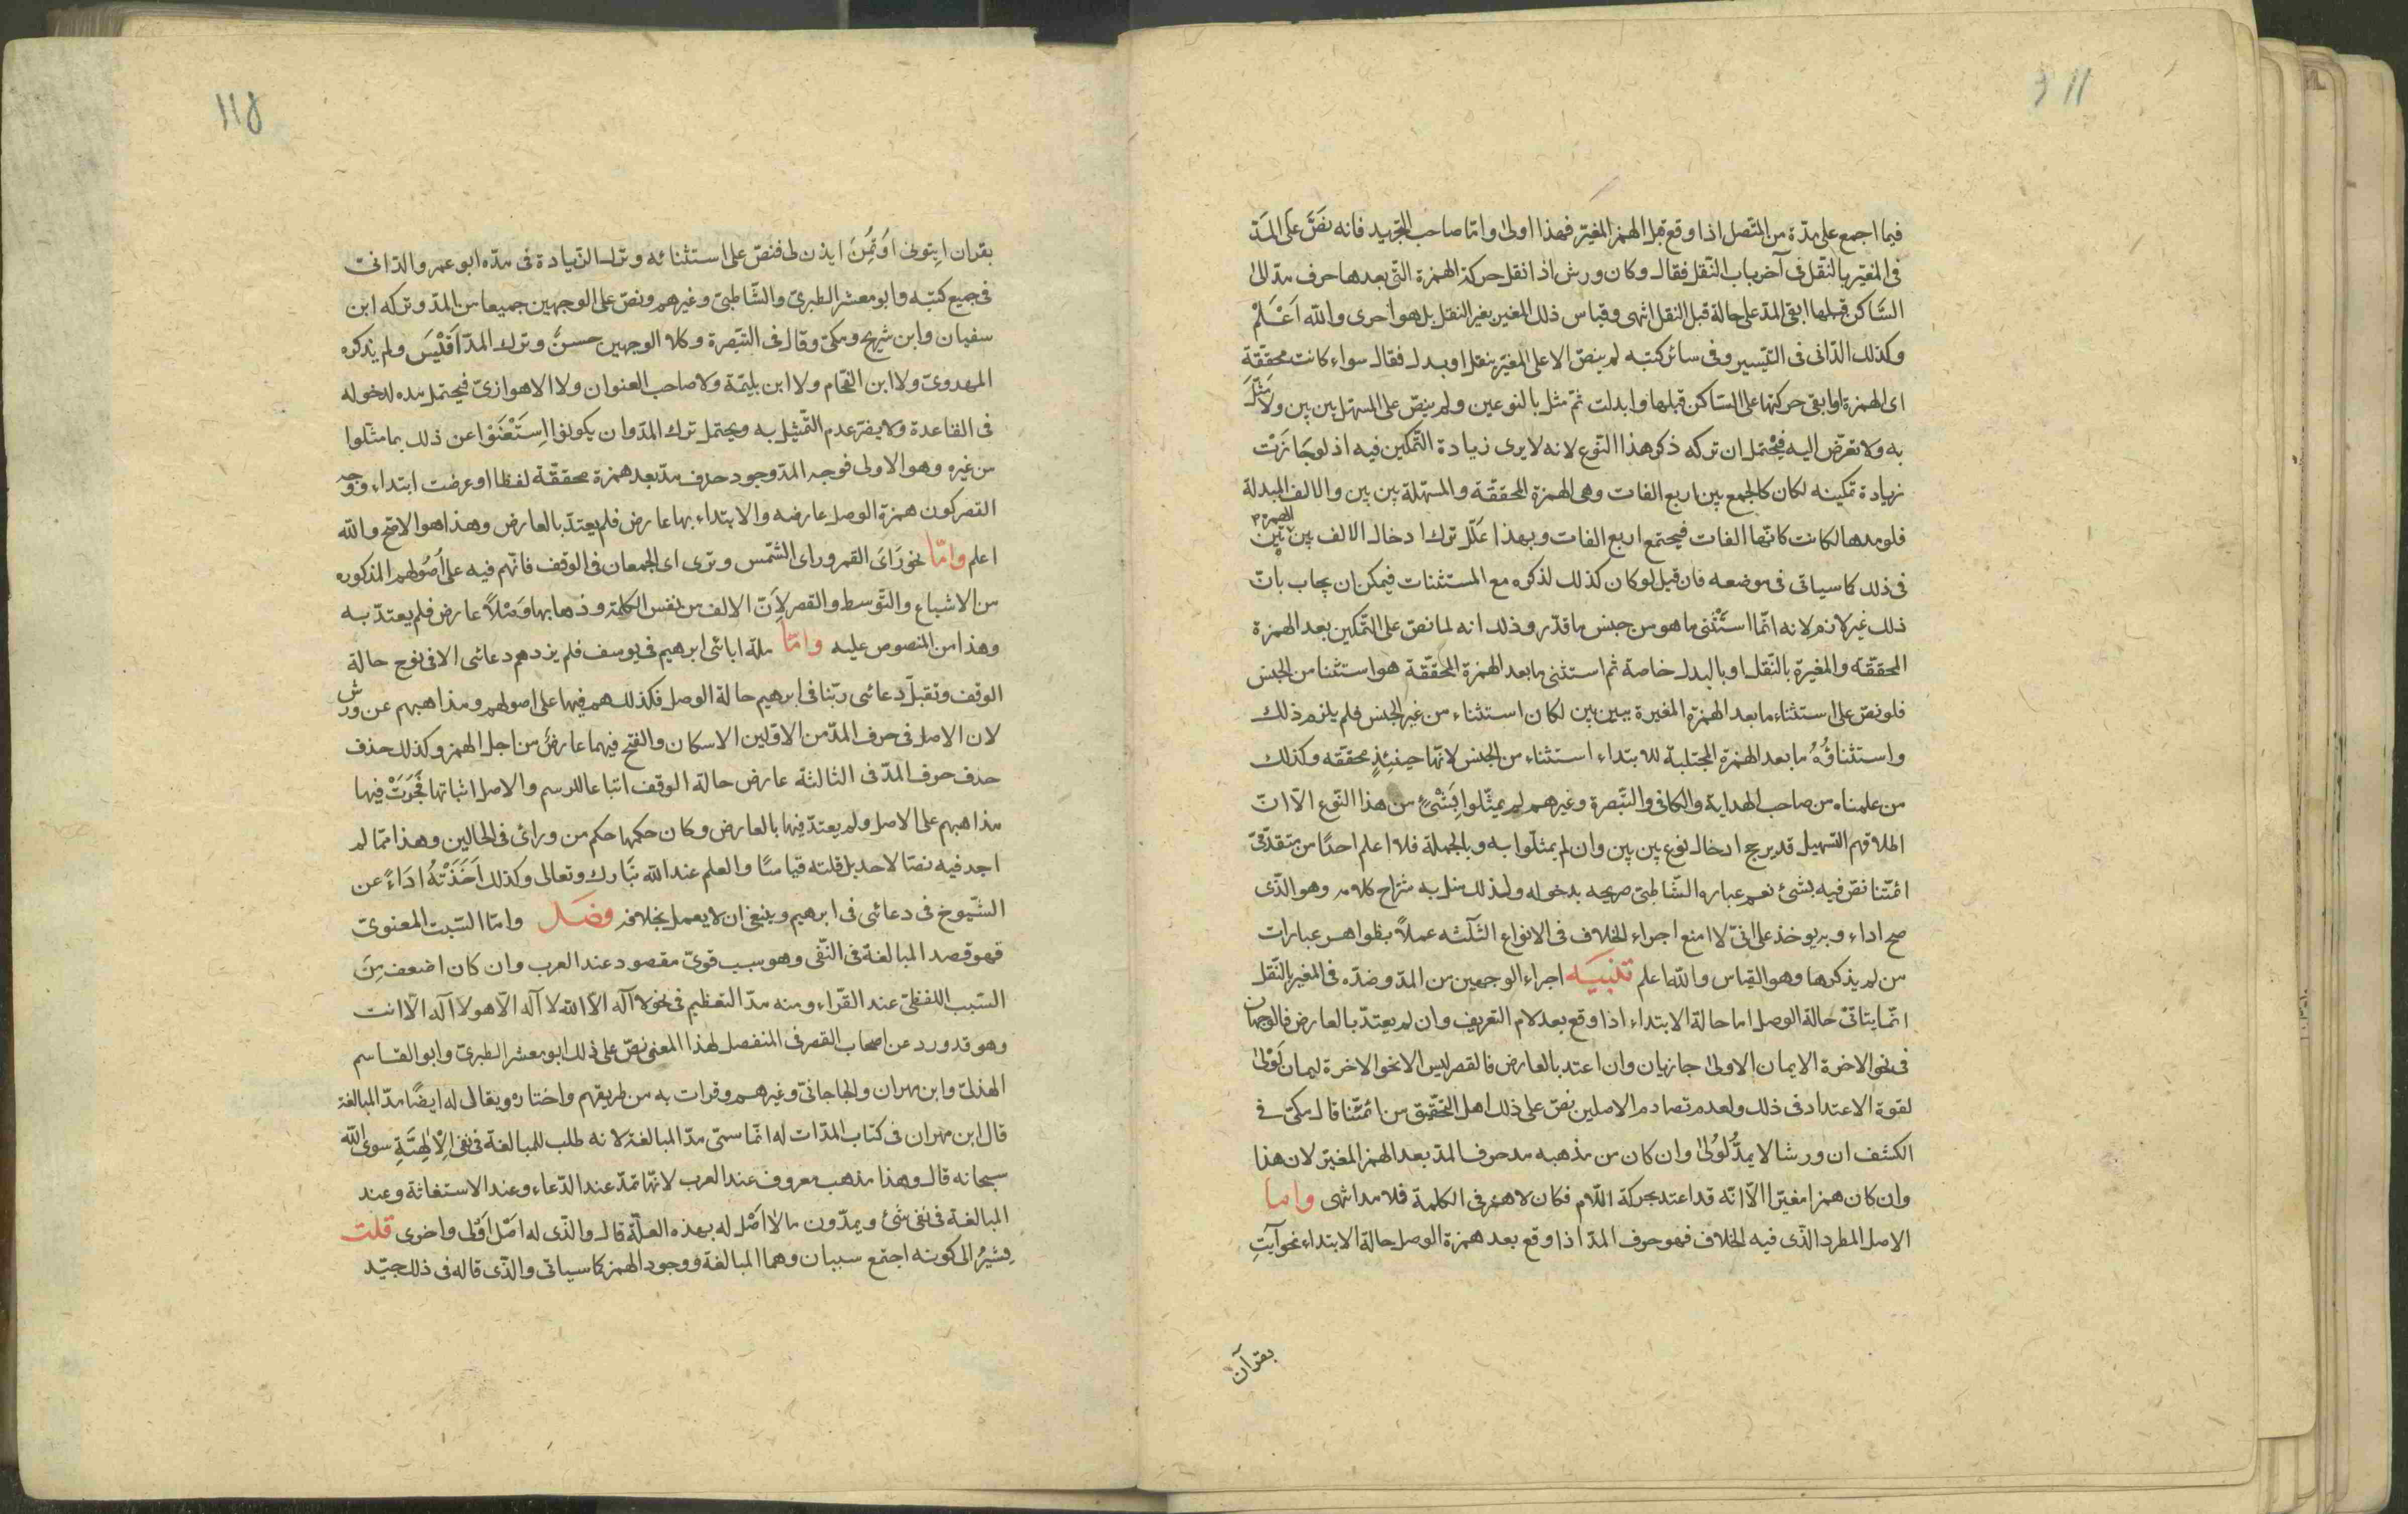 فيما اجمع على مدّة من المتّصل اذا وقع قبل الهمز المغيّر فهذا اولى وامّا صاحب التجريد فانه نصّ على المدّ
فى المغيّر بالنّقل فى آخر باب النّقل فقال وكان ورش اذا نقل حركة الهمزة التّى بعدها حرف مدّ الى
السّاكن قبلها ابقى المدّ على حالة قبل النقل انتهى وقياس ذلك المغيّر بغير النقل بل هو احرى والله اَعْلَمُ
وكذلك الدّانى فى التّيسير وفى سائر كتبه لم ينصّ الا على المغيّر بنقل او بدل فقال سواء كانت محقّقة
اى الهمزة او ابقى حركتها على السّاكن قبلها وابدلت ثمّ مثّل بالنوعين ولم ينصّ على المسهّل بين بين ولا مَثَّلَ
به ولا تعرّض اليه فيُحْتمل ان تركه ذكر هذا النّوع لانه لا يرى زيادة التّمكين فيه اذ لو جَازَتْ
زيادة تمكينه لكان كالجمع بين اربع الفات وهى الهمزة المحقّقة والمسهّلة بين بين والالف المبدلة
فلو مدها لكانت كانّها الفات فيجتمع اربع الفات وبهذا علّل ترك ادخال الالف بين الهمزة بين
فى ذلك كما سياتى فى موضعه فان قيل لو كان كذلك لذكره مع المستثنات فيمكن ان يجاب بانّ
ذلك غير لازم لانه انّما استَثْنى ما هو من جنس ما قدّر وذلك انه لما نصّ على التّمكين بعد الهمزة
المحقّقه والمغيرة بالنّقل او بالبدل خاصة ثم استثنى ما بعد الهمزة المحقّقة هو استثنا من الجنس
فلو نصّ على استثناء ما بعد الهمزة المغيرة ببين بين لكان استثناء من غير الجنس فلم يلزم ذلك
واستثناؤُهُ ما بعد الهمزة المجتلبة للابتداء استثناء من الجنس لانّها حينئِذٍ محقّقه وكذلك
من علمناه من صاحب الهداية والكافى والتّبصرة وغيرهم لم يمثّلوا بِشْىءٍ من هذا النّوع الّا انّ
اطلاقهم التسهيل قد يرجح ادخال نوع بين بين وان لم يمثلّوا به وبالجملة فلا اعلم احدًا من متقدّمىّ
ائمّتنا نصّ فيه بشئ نعم عباره الشّاطبىّ صريحه بدخوله ولذلك مثل به شرّاح كلامه وهو الذّى
صح اداء وبه يوخذ على انّى لا امنع اجراء الخلاف فى الانواع الثّلثه عملاً بظواهر عبارات
من لم يذكرها وهو القياس والله اعلم تَنْبيَه اجراء الوجهين من المدّ وضدّه فى المغير بالنّقل
انّما يتاتىّ حالة الوصل اما حالة الابتداء اذا وقع بعد لام التعريف وان لم يعتدّ بالعارض فالوجهان
فى نحو الاخرة الايمان الاولى جازيان وان اعتد بالعارض فالقصر ليس الا نحو الاخرة ليمان لَوْلى
لقوة الاعتداد فى ذلك ولعدم تصادم الاصلين نصّ على ذلك اهل التّحقيق من ائمّتنا قال مكىّ فى
الكشف ان ورشا لا يمدُّ لُوُلى وان كان من مذهبه مد حرف المدّ بعد الهمز المغيّر لان هذا
وان كان همزا مغيّرا الّا انّه قد اعتد بحركة اللّام فكان لا همز فى الكلمة فلا مد انتهى واما
الاصل المطرد الذّى فيه الخلاف فهو حرف المدّ اذا وقع بعد همزة الوصل حالة الابتداء نحو آيتِ
بقرآن
بقران ايتونى اوتُمِنَ ايذن لى فنصّ على استثنائه وترك الزّيادة فى مدّه ابو عمرو الدّانىّ
فى جميع كتبه وابو معشر الطبرىّ والشّاطبىّ وغيرهم ونصّ على الوجهين جميعا من المدّ وتركه ابن
سفيان وابن شريح ومكىّ وقال فى التبّصرة وكلا الوجهين حسنٌ وترك المدّ اَقْيَس ولم يذكره
المهدوىّ ولا ابن الفحّام ولا ابن بليّمة ولا صاحب العنوان ولا الاهوازىّ فيحتمل مده لدخوله
فى القاعدة ولا يضر عدم التّمثيل به ويحتمل ترك المدّ وان يكونوا اِسْتَغْنَوْا عن ذلك بما مثّلوا
من غيره وهو الاولى فوجه المدّ وجود حرف مدّ بعد همزة محقّقة لفظا او عرضت ابتداء ووجه
القصر كون همزة الوصل عارضه والابتداء بها عارض فلم يعتدّ بالعارض وهذا هو الاصّح والله
اعلم وامّا نحو رَاَى القمر وراى الشّمس وترى اى الجمعان فى الوقف فانّهم فيه على اُصُولهم المذكوره
من الاشباع والتّوسط والقصر لِاَنّ الالف من نفس الكلمة وذهابها وَصْلاً عارض فلم يعتدّ به
وهذا من المنصوص عليه وامّا ملة ابائى ابرهيم فى يوسف فلم يزدهم دعائى الا فى نوح حالة
الوقف وتقبلّ دعائى ربّنا فى ابرهيم حالة الوصل فكذلك هم فيها على اصولهم ومذاهبهم عن ورش
لان الاصل فى حرف المدّ من الاوّلين الاسكان والفتح فيهما عارضٌ من اجل الهمز وكذلك حذف
حذف حرف المدّ فى الثالثة عارض حالة الوقف اتباعا للرسم والاصل اثباتها فَجَرَتْ فيها
مذاهبهم على الاصل ولم يعتدّ فيها بالعارض وكان حكمها حكم من ورائى فى الحالين وهذا ممّا لم
اجد فيه نصّا لاحد بل قلته قياسًا والعلم عند الله تبَارك وتعالى وكذلك اَخَذَتْهُ ادَاءً عن
الشّيوخ فى دعائى فى ابرهيم وينبغى ان لا يعمل بخلافه وفصَل وامّا السّبت المعنوىّ
فهو قصد المبالغة فى النّفى وهو سبب قوىّ مقصود عند العرب وان كان اضعف مِنَ
السّبب اللفظىّ عند القرّاء ومنه مدّ التعظيم فى نحو لا آله الاّ الله لا آله الاّ هو لا آله الّا انت
وهو قد ورد عن اصحاب القصر فى المنفصل لهذا المعنى نصّ على ذلك ابو معشر الطبرىّ وابو القاسم
الهذلىّ وابن مهران والجاجانىّ وغيرهم وقرات به من طريقهم واختاره ويقال له ايضًا مدّ المبالغة
قال ابن مهران فى كتاب المدّات له انّما سمىّ مدّ المبالغة لانه طلب للمبالغة فى نفى اِلْاِلٰهِيَّةِ سوى الله
سبحانه قال وهذا مذهب معروف عند العرب لانّها تمدّ عند الدّعاء وعند الاستغاثة وعند
المبالغة فى نفى شئ ويمدّون ما لا اصْل له بهذه العلّة قال والذّى له اصْل اَوْلى واحرى قلت
يُشيرُ الى كونه اجتمع سببان وهما المبالغة ووجود الهمز كما سياتى والذّى قاله فى ذلك جيّد